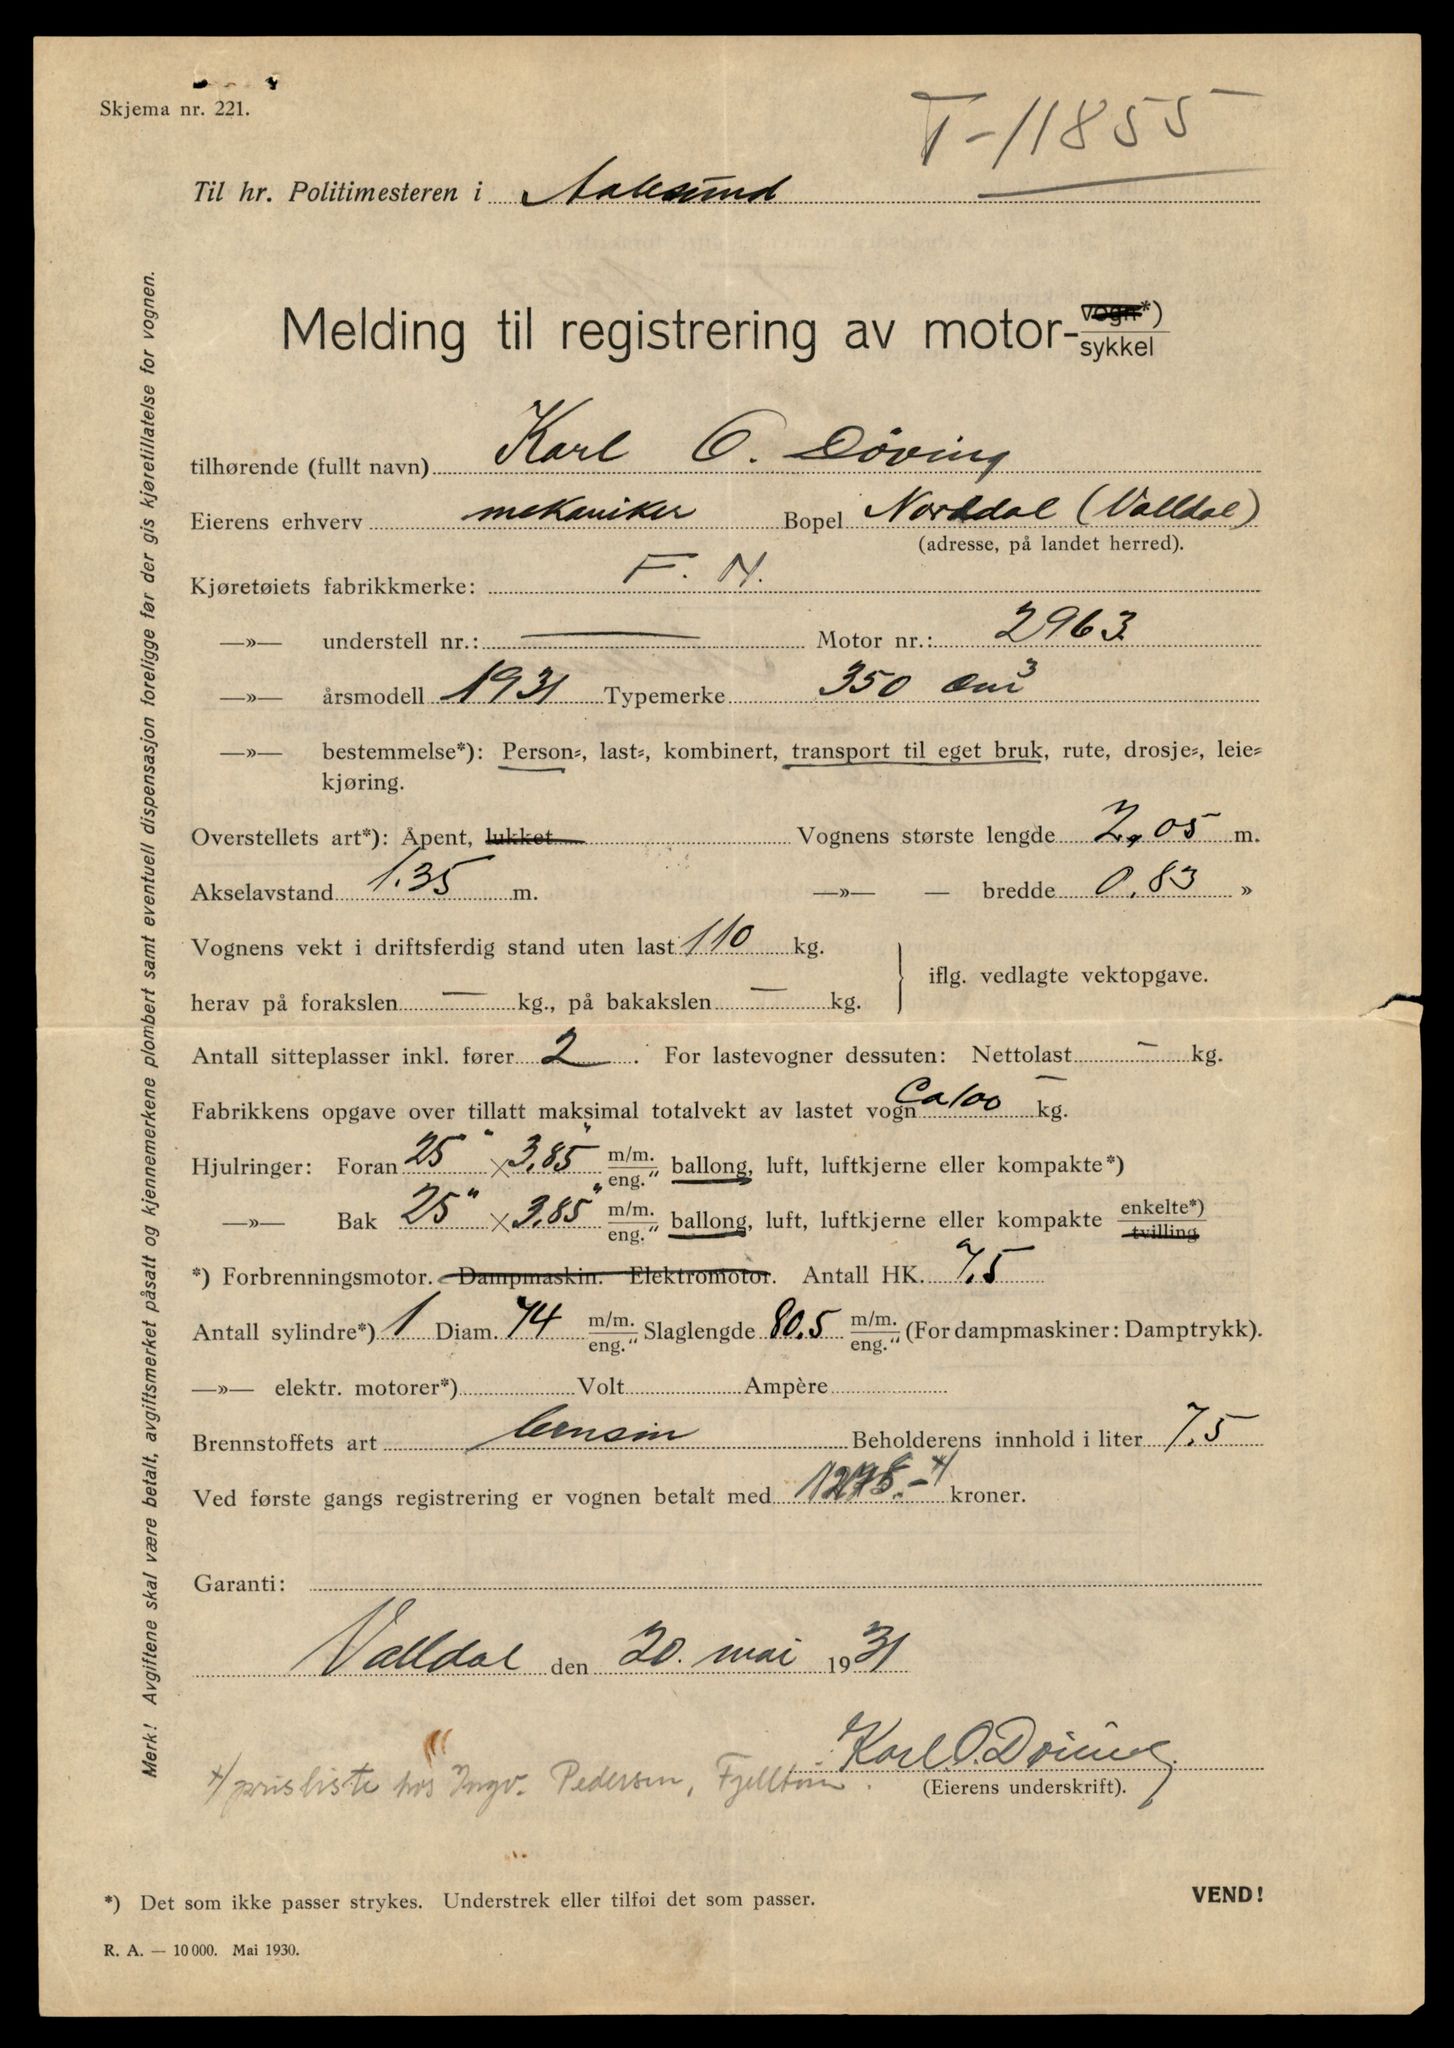 Skjema nr. 221.
T-11855
Til hr. Politimesteren i Aalesund
Melding til registrering av motor-vogn*) sykkel
tilhørende (fullt navn) Karl O. Døving
Eierens erhverv mekaniker Bopel Norddal (Valldal)
(adresse, på landet herred).
Kjøretøiets fabrikkmerke: F. N.
—»— understell nr.: — Motor nr.: 2963
—»— årsmodell 1931 Typemerke 350 cm³
—»— bestemmelse*): Person-, last-, kombinert, transport til eget bruk, rute, drosje-, leie-
kjøring.
Overstellets art*): Åpent, lukket Vognens største lengde 2,05 m.
Akselavstand 1.35 m. —»— — bredde 0.83 »
Vognens vekt i driftsferdig stand uten last 110 kg.
iflg. vedlagte vektopgave.
herav på forakslen — kg., på bakakslen — kg.
Antall sitteplasser inkl. fører 2. For lastevogner dessuten: Nettolast — kg.
Fabrikkens opgave over tillatt maksimal totalvekt av lastet vogn Ca 100 kg.
Hjulringer: Foran 25" × 3,85" m/m. eng." ballong, luft, luftkjerne eller kompakte*)
—»— Bak 25" × 3,85" m/m. eng." ballong, luft, luftkjerne eller kompakte enkelte*) tvilling
*) Forbrenningsmotor. Dampmaskin. Elektromotor. Antall HK. 7,5
Antall sylindre*) 1 Diam. 74 m/m. eng." Slaglengde 80.5 m/m. eng." (For dampmaskiner: Damptrykk).
—»— elektr. motorer*) Volt Ampère
Brennstoffets art bensin Beholderens innhold i liter 7.5
Ved første gangs registrering er vognen betalt med kroner.
Garanti:
Valldal den 20. mai 1931
Karl O. Døving
(Eierens underskrift).
x/ prisliste hos Ingv. Pedersen,
*) Det som ikke passer strykes. Understrek eller tilføi det som passer.
VEND!
R. A. — 10 000. Mai 1930.
Merk! Avgiftene skal være betalt, avgiftsmerket påsatt og kjennemerkene plombert samt eventuell dispensasjon foreligge før der gis kjøretillatelse for vognen.